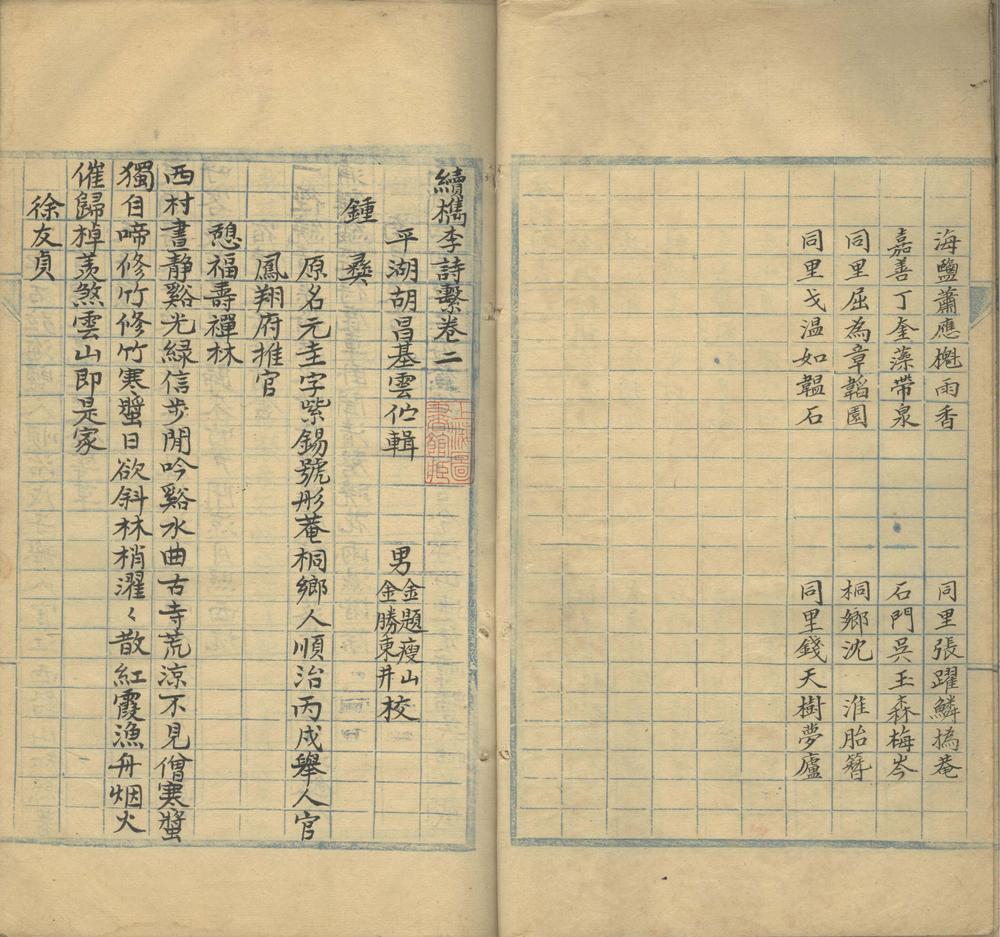 海鹽蕭應櫆雨香 同里張躍鱗撝菴
嘉善丁奎藻帶泉 石門吳玉森梅岑
同里屈為章韜園 桐鄉沈淮胎簪
同里戈温如韞石 同里錢天樹夢廬
續檇李詩繫卷二
上海圖書館藏
平湖胡昌基雲伫輯 男金題瘦山金勝東井校
鍾彝
原名元圭字紫錫號彤菴桐鄉人順治丙戌舉人官
鳳翔府推官
憩福壽禪林
西村晝静谿光緑信步閒吟谿水曲古寺荒涼不見僧寒螿
獨自啼修竹修竹寒螿日欲斜林梢濯〻散紅霞漁舟烟火
催歸棹羨煞雲山即是家
徐友貞